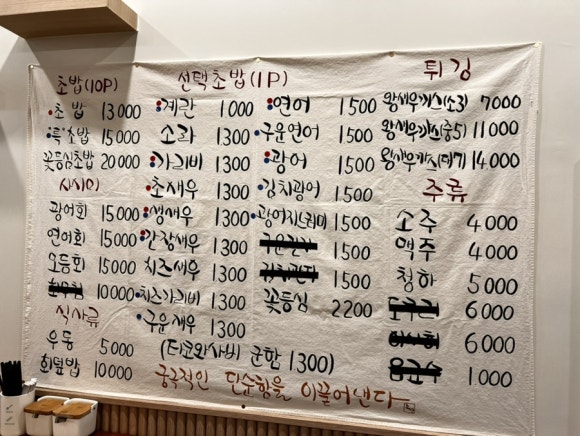 초밥(10P)
초밥 13000
특초밥 15000
꽃등심초밥 20000
사시미
광어회 15000
연어회 15000
모듬회 15000
10000
식사류
우동 5000
회덮밥 10000
선택초밥(1P)
계란 1000
소라 1300
가리비 1300
초새우 1300
생새우 1300
간장새우 1300
치즈새우 1300
치즈가리비 1300
구운새우 1300
(타코와사비 군함 1300)
연어 1500
구운연어 1500
광어 1500
김치광어 1500
광어지느러미 1500
1500
1500
꽃등심 2200
튀김
왕새우까스(소3) 7000
왕새우까스(중5) 11000
왕새우까스(대7) 14.000
주류
소주 4000
맥주 4000
청하 5000
6000
6000
1000
궁극적인 단순함을 이끌어낸다